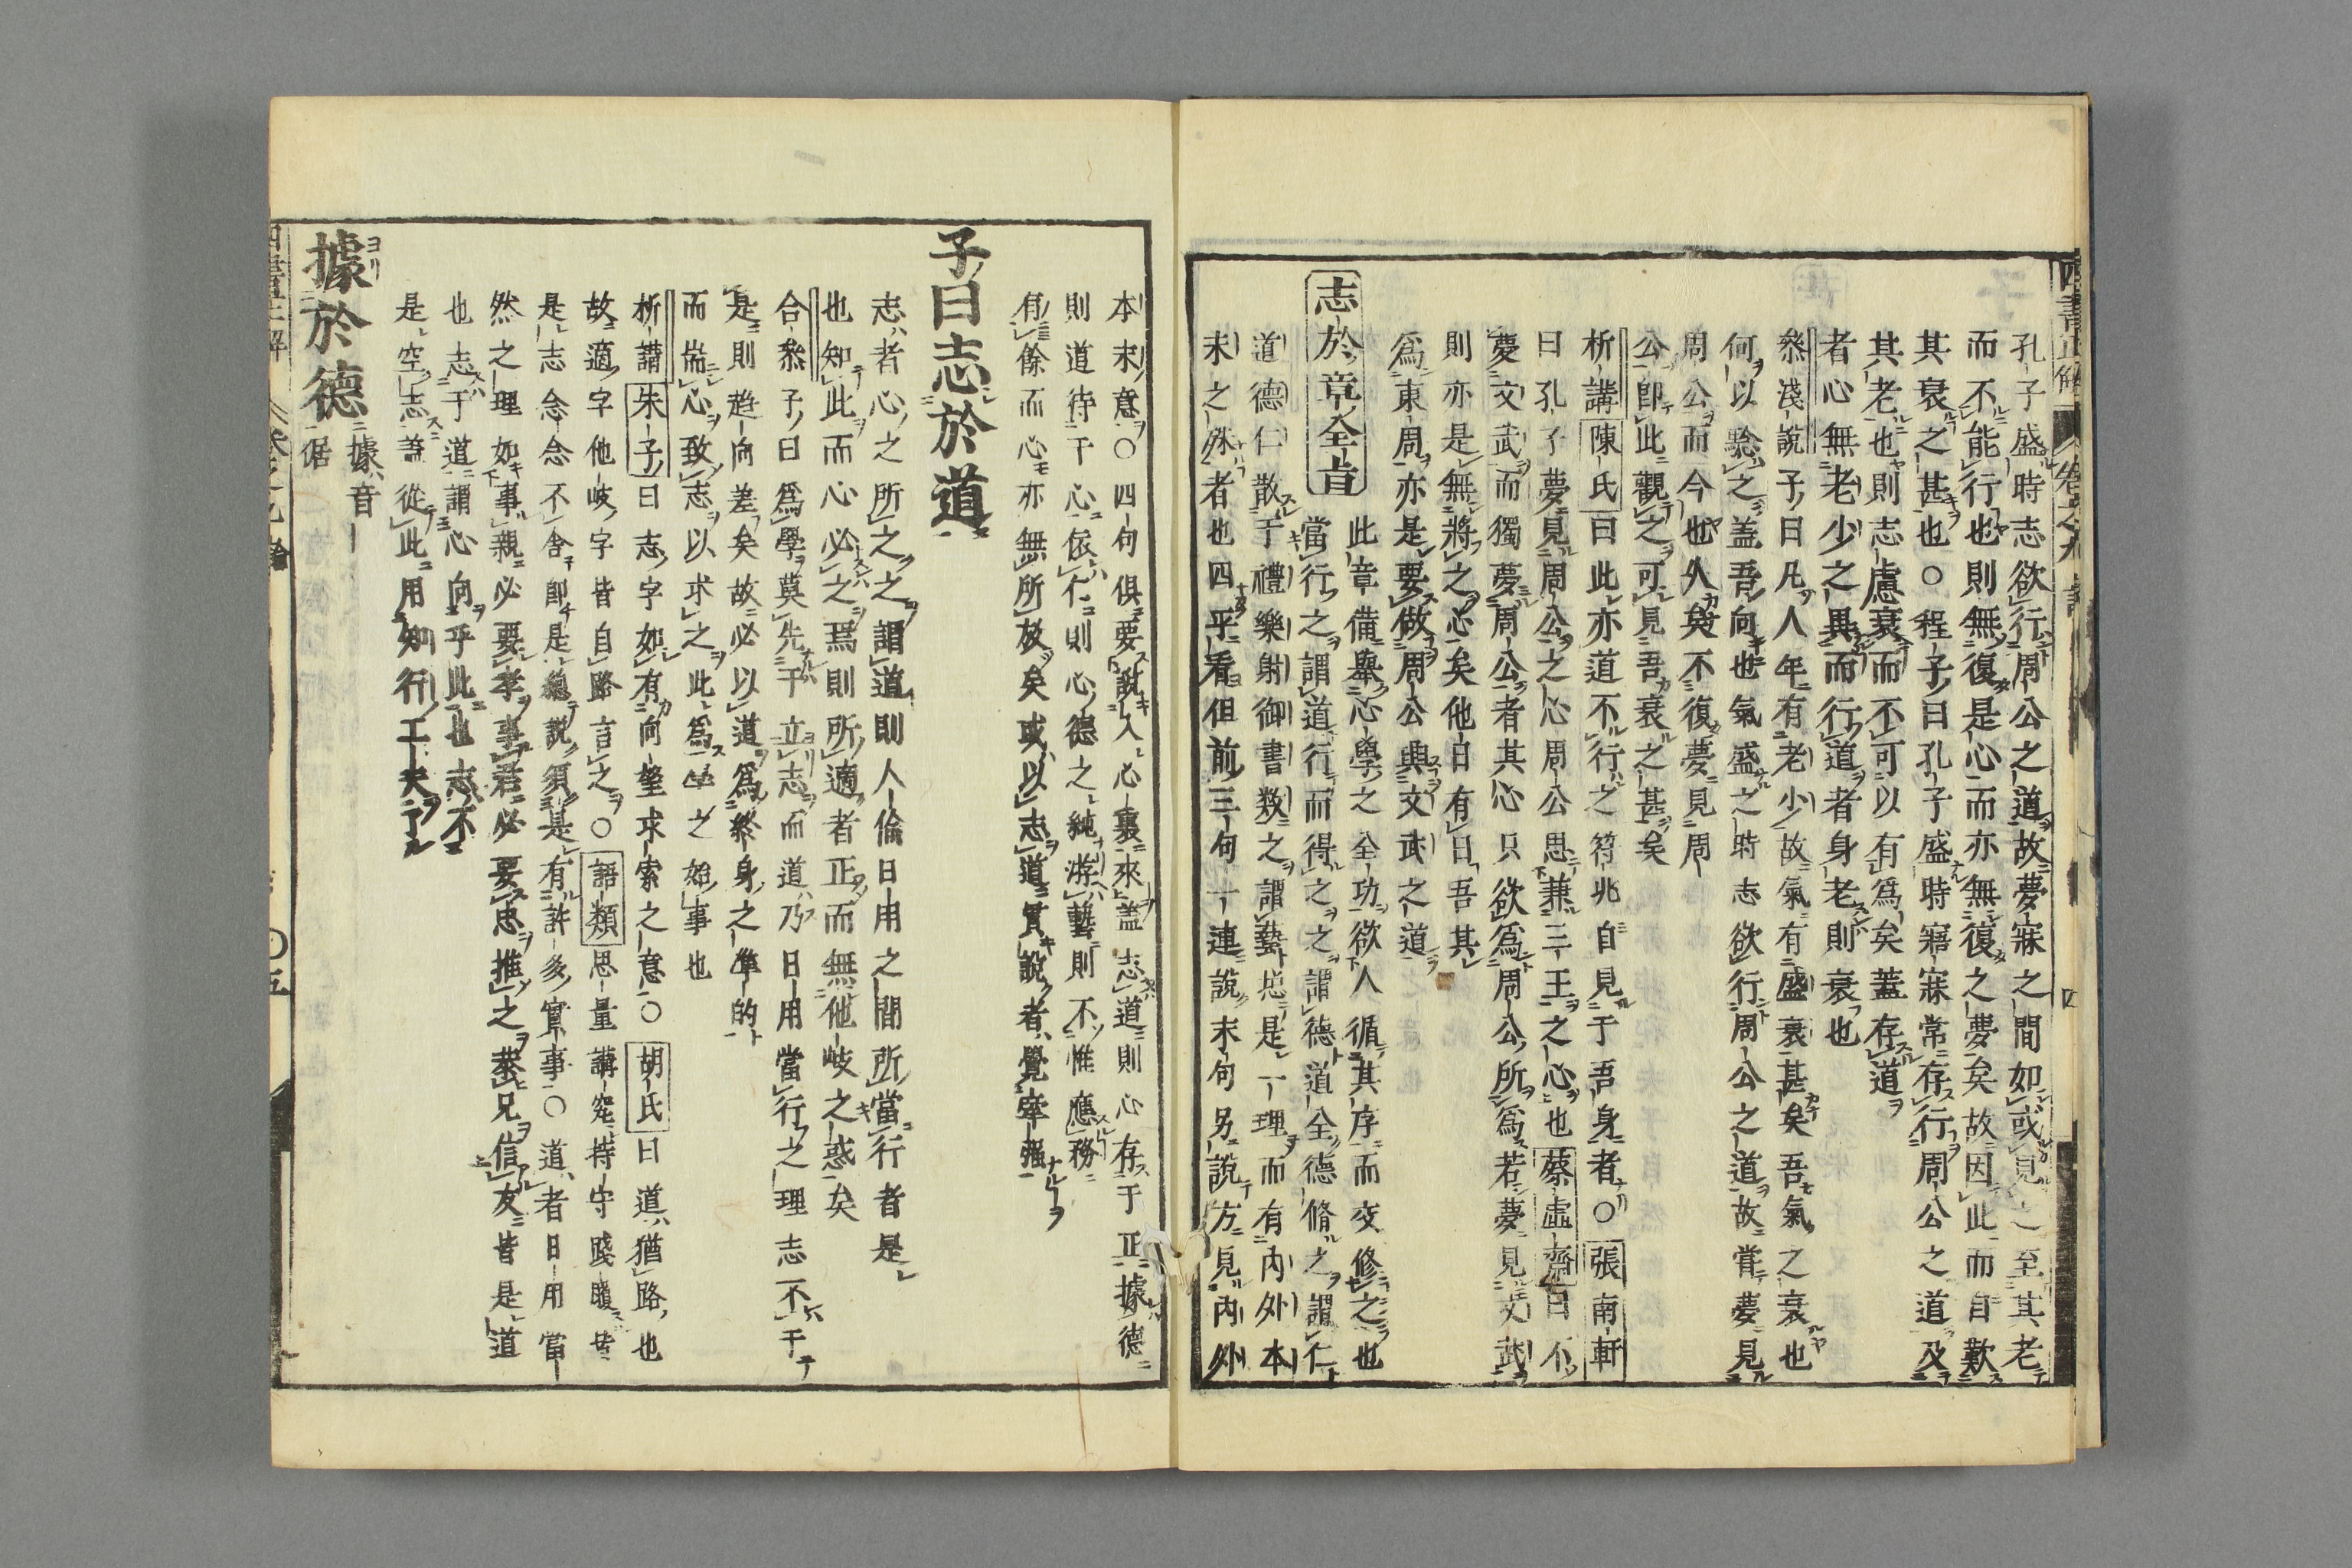 孔子盛時志欲行周公之道故夢寐之間如或見之至其老
而不能行也則無復是心而亦無復之夢矣故因此而自歎
其衰之甚也○程子曰孔子盛時寤寐常存行周公之道及
其老也則志慮衰而不可以有爲矣蓋存道
者心無老少之異而行道者身老則衰也
叅淺說子曰凡人年有老少故氣有盛衰甚矣吾氣之衰也
何以驗之蓋吾向也氣盛之時志欲行周公之道故嘗夢見
周公而今也久矣不復夢見周
公即此觀之可見吾衰之甚矣
析講陳氏曰此亦道不行之符兆自見于吾身者○張南軒
曰孔子夢見周公之心周公思兼三王之心也蔡虛齋曰不
夢文武而獨夢周公者其心只欲爲周公所爲若夢見文武
則亦是無將之心矣他日有曰吾其
爲東周亦是要做周公與文武之道
志於章全旨
此章備舉心學之全功欲人循其序而交修之也
當行之謂道行而得之之謂德道全德脩之謂仁
道德仁散于禮樂射御書数之謂藝總是一理而有內外本
末之殊者也四平看但前三句一連說末句另說方見內外
本末意○四句俱要說入心裏來盖志道則心存于正據德
則道待于心依仁則心德之純游藝則不惟應務
有餘而心亦無所放矣或以志道貫說者覺牽强
子曰志於道
志者心之所之之謂道則人倫日用之間所當行者是
也知此而心必之焉則所適者正而無他岐之惑矣
合叅子曰爲學莫先于立志而道乃日用當行之理志不于
是則趋向差矣故必以道爲終身之凖的
而耑心致志以求之此爲學之始事也
析講朱子曰志字如有向望求索之意○胡氏曰道猶路也
故適字他岐字皆自路言之○語類思量講究持守踐履皆
是志念念不舍即是總說須是有許多實事○道者日用當
然之理如事親必要孝事君必要忠推之恭兄信友皆是道
也志于道謂心向乎此也志不
是空志蓋從此用知行工夫了
據於德
據音
倨